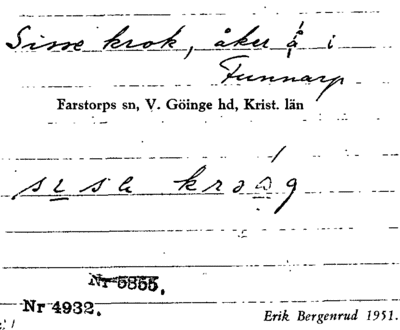 Sisse krok, åker å i
Funnarp
Farstorps sn, V. Göinge hd, Krist. län
Nr 5855.
Nr 4932.
Erik Bergenrud 1951.